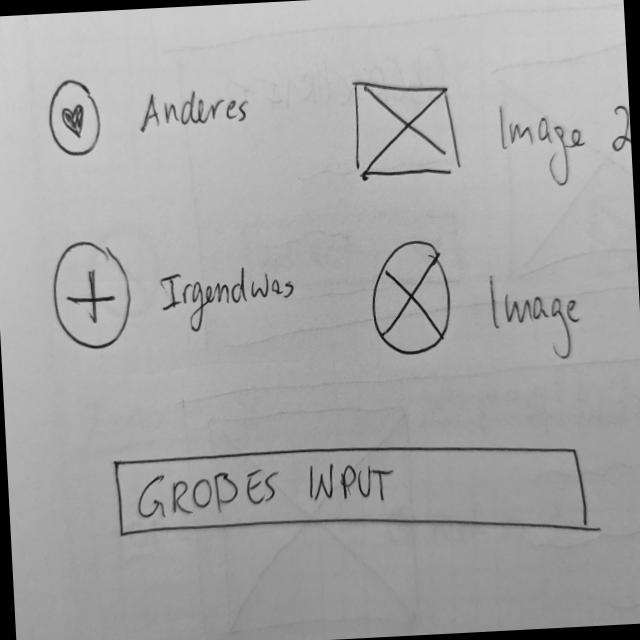 Anderes
Image 2
Irgendwas
Image
GROBES INPUT